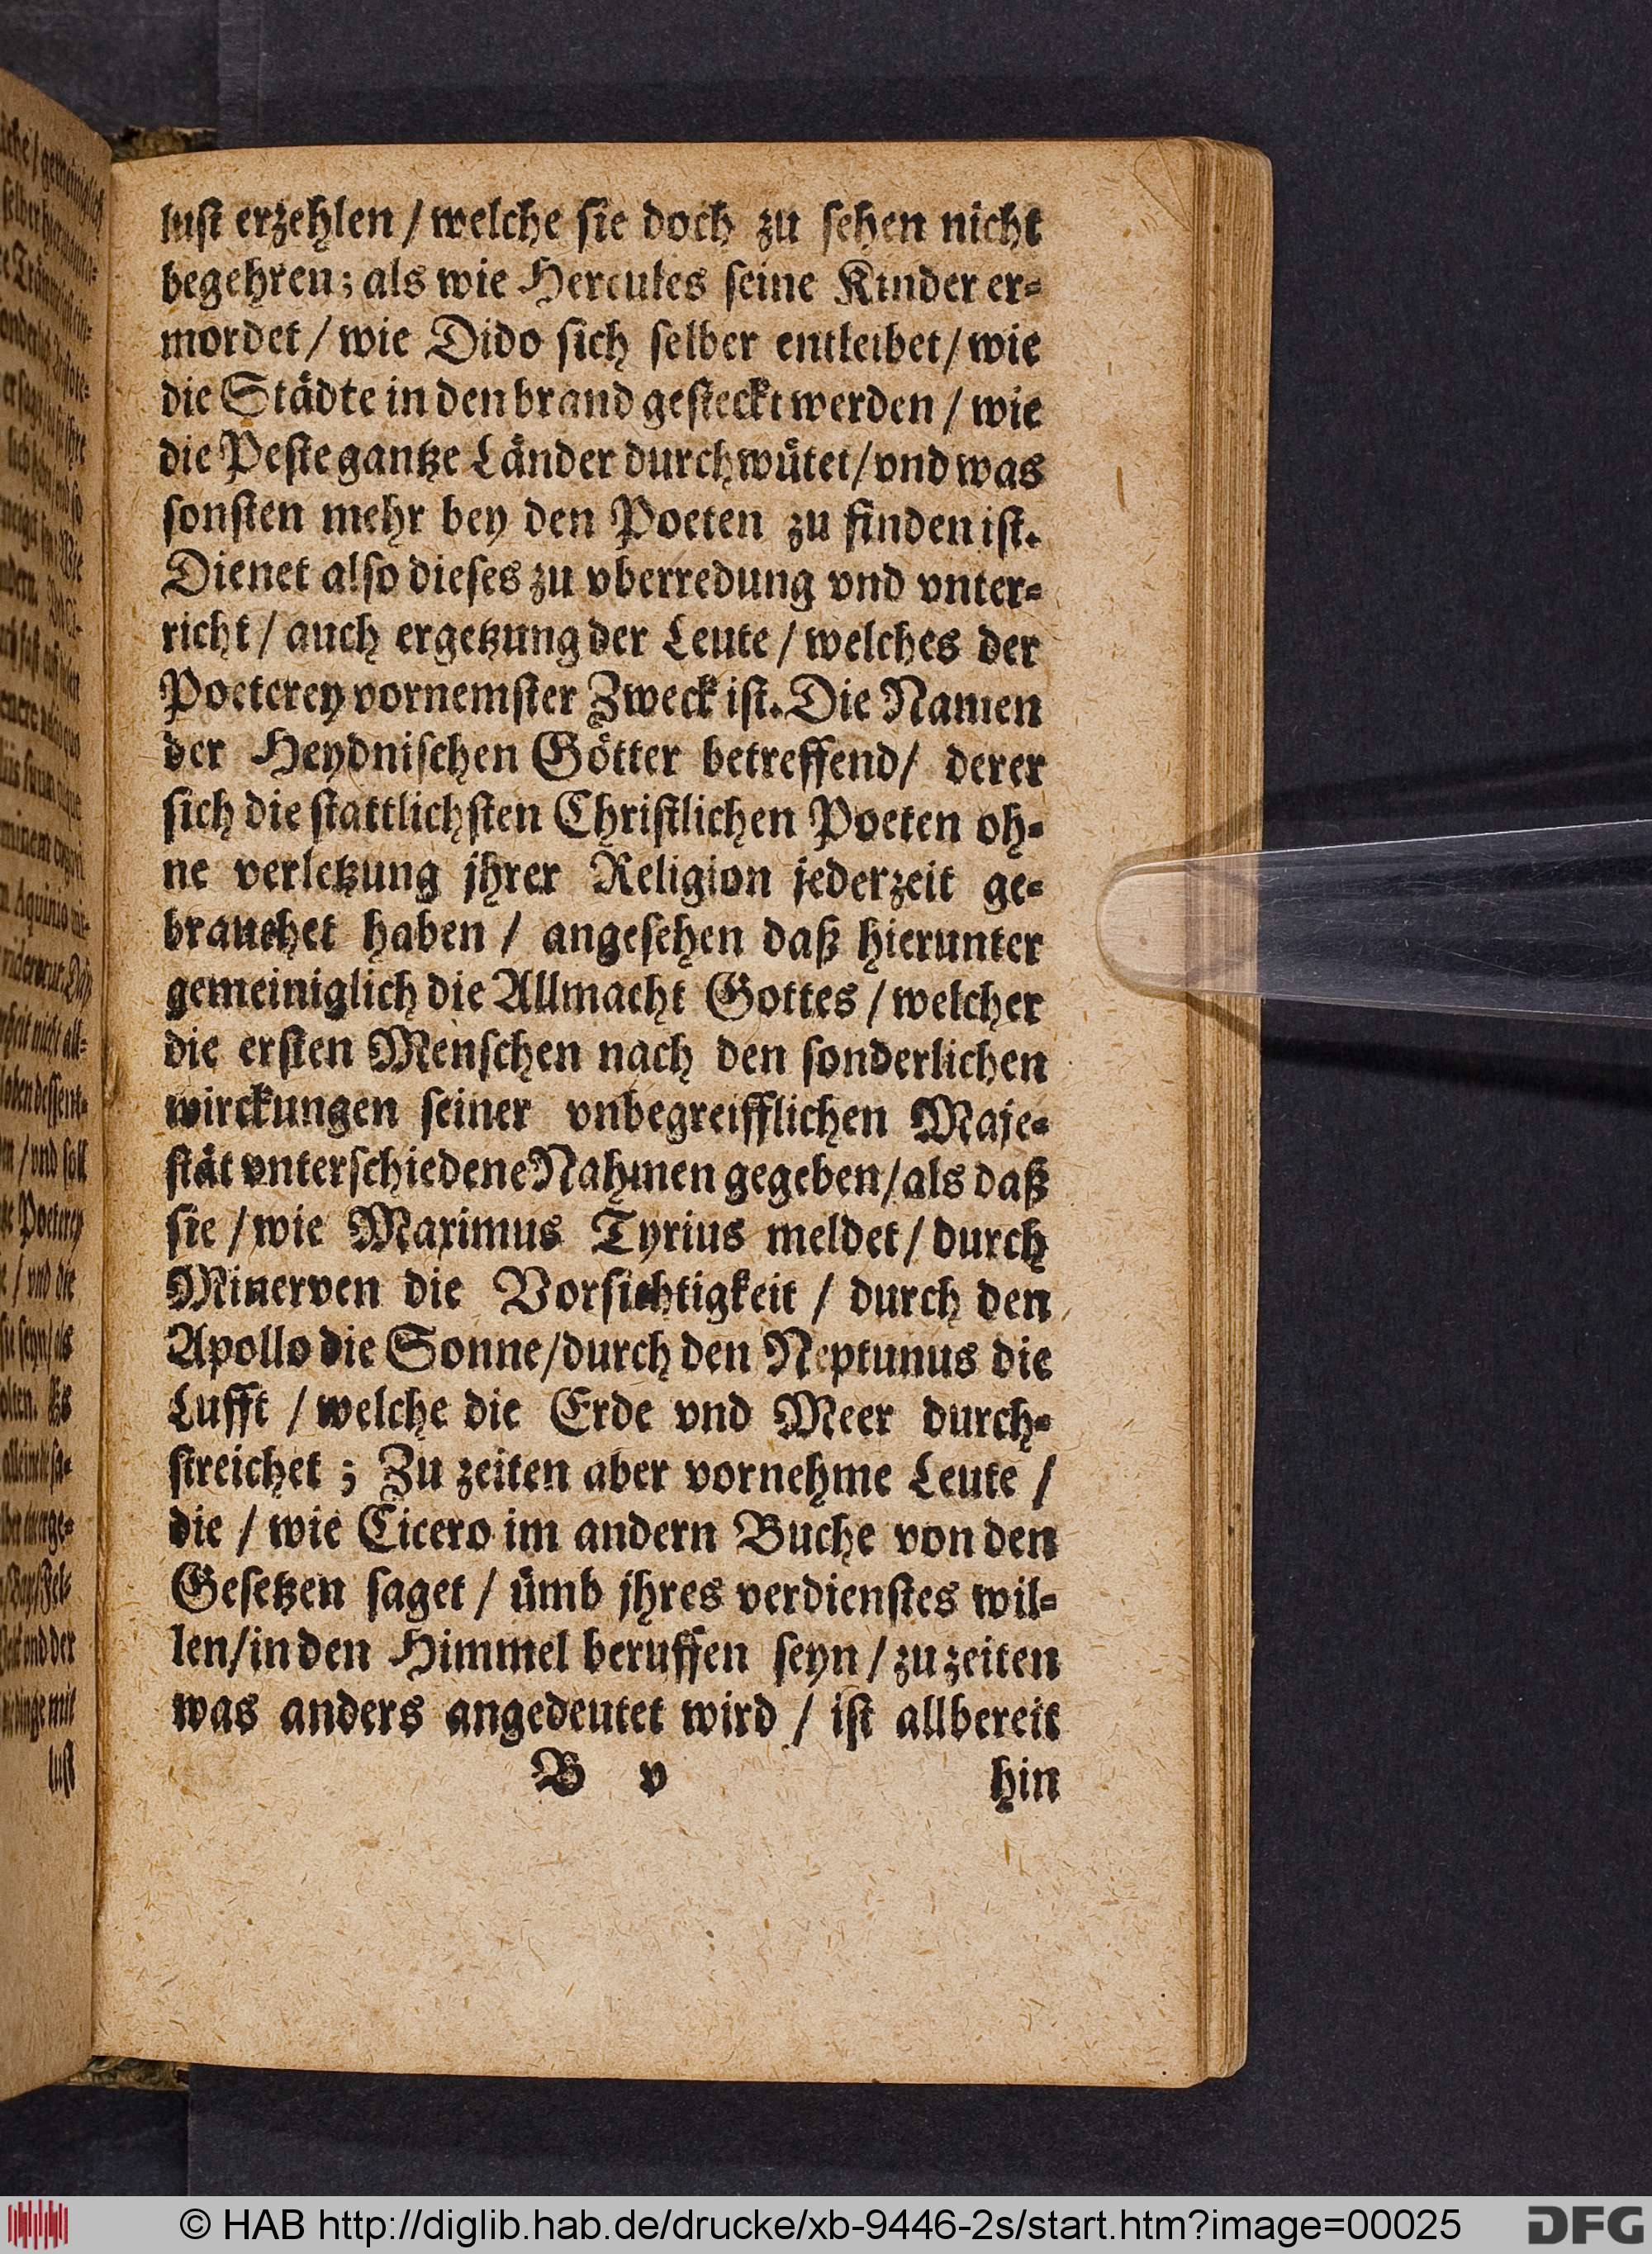 lust erzehlen / welche sie doch zu sehen nicht
begehren; als wie Hercules seine Kinder er-
mordet / wie Dido sich selber entleibet / wie
die Städte in den brand gesteckt werden / wie
die Peste gantze Länder durchwütet / vnd was
sonsten mehr bey den Poeten zu finden ist.
Dienet also dieses zu vberredung vnd vnter-
richt / auch ergetzung der Leute / welches der
Poeterey vornemster Zweck ist. Die Namen
der Heydnischen Götter betreffend / derer
sich die stattlichsten Christlichen Poeten oh-
ne verletzung jhrer Religion jederzeit ge-
brauchet haben / angesehen daß hierunter
gemeiniglich die Allmacht Gottes / welcher
die ersten Menschen nach den sonderlichen
wirckungen seiner vnbegreifflichen Maje-
stät vnterschiedene Nahmen gegeben / als daß
sie / wie Maximus Tyrius meldet / durch
Minerven die Vorsichtigkeit / durch den
Apollo die Sonne / durch den Neptunus die
Lufft / welche die Erde vnd Meer durch-
streichet ; Zu zeiten aber vornehme Leute /
die / wie Cicero im andern Buche von den
Gesetzen saget / ümb jhres verdienstes wil-
len / in den Himmel beruffen seyn / zu zeiten
was anders angedeutet wird / ist allbereit
B v hin
© HAB http://diglib.hab.de/drucke/xb-9446-2s/start.htm?image=00025
DFG